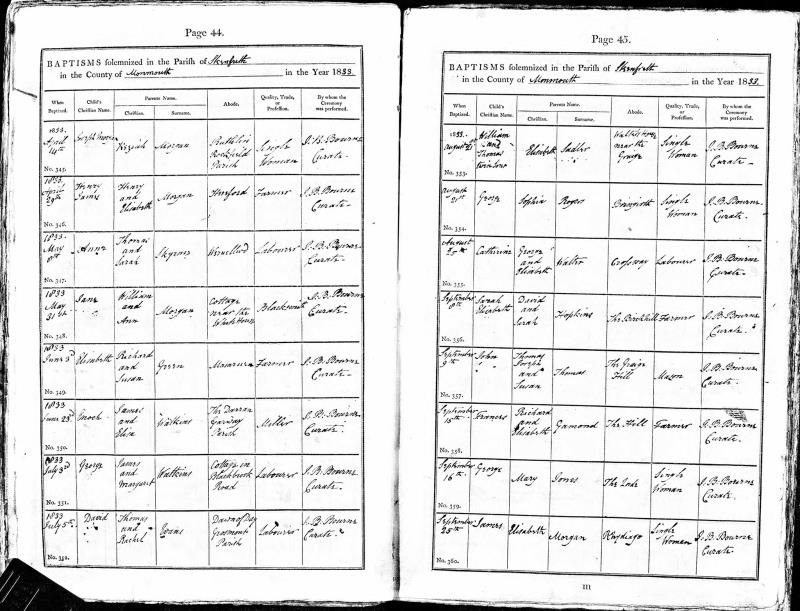 Page 44.
BAPTISMS solemnized in the Parish of Skenfreth
in the County of Monmouth in the Year 1833.
When Baptized. Child's Christian Name. Parents Name. Christian. Surname. Abode. Quality, Trade, or Profession. By whom the Ceremony was performed.
1833. April 14th Joseph Keziah Morgan Parish Single Woman J. B. Bourne Curate.
No. 345.
1833 April 29th Henry James Henry and Elizabeth Morgan Farmer J. B. Bourne Curate.
No. 346.
1833 May 8th Anne Thomas and Sarah Labourer J. B. Bourne Curate.
No. 347.
1833 May 31st Jane William and Ann Morgan Cottage near the Blacksmith J. B. Bourne Curate.
No. 348.
1833 June 3d Elizabeth Richard and Susan Green Farmer J. B. Bourne Curate.
No. 349.
1833 June 23d Enoch James and Eliza Watkins The Darran Garway Parish Miller J. B. Bourne Curate.
No. 350.
1833 July 3d George James and Margaret Watkins Cottage on Blackbrook Road Labourer J. B. Bourne Curate.
No. 351.
1833 July 5th David Thomas and Rachel Evans Dawn of Day Grosmont Parish Labourer J. B. Bourne Curate.
No. 352.
Page 45.
BAPTISMS solemnized in the Parish of Skenfreth
in the County of Monmouth in the Year 1833.
When Baptized. Child's Christian Name. Parents Name. Christian. Surname. Abode. Quality, Trade, or Profession. By whom the Ceremony was performed.
1833. August William and Thomas Elizabeth Sadler near the Single Woman J. B. Bourne Curate.
No. 353.
August 21st George Sophia Single Woman J. B. Bourne Curate.
No. 354.
August 25th Catherine George and Elizabeth Walter Crossway Labourer J. B. Bourne Curate.
No. 355.
September 8th Sarah Elizabeth David and Sarah Hopkins The Birch Hill Farmer J. B. Bourne Curate.
No. 356.
September 9th John Thomas Joseph and Susan Thomas The Graige Hill Mason J. B. Bourne Curate.
No. 357.
September 15th Frances Richard and Elizabeth Gamond The Hill Farmer J. B. Bourne Curate.
No. 358.
September 16th George Mary Jones The Single Woman J. B. Bourne Curate.
No. 359.
September 25th James Elizabeth Morgan Single Woman J. B. Bourne Curate
No. 360.
III